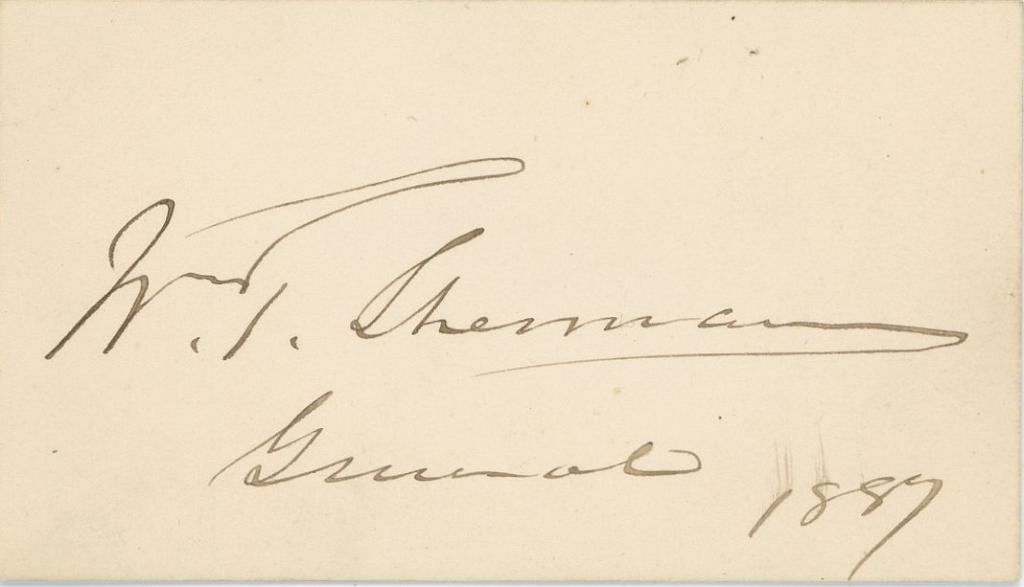 Wm. T. Sherman
General
1887